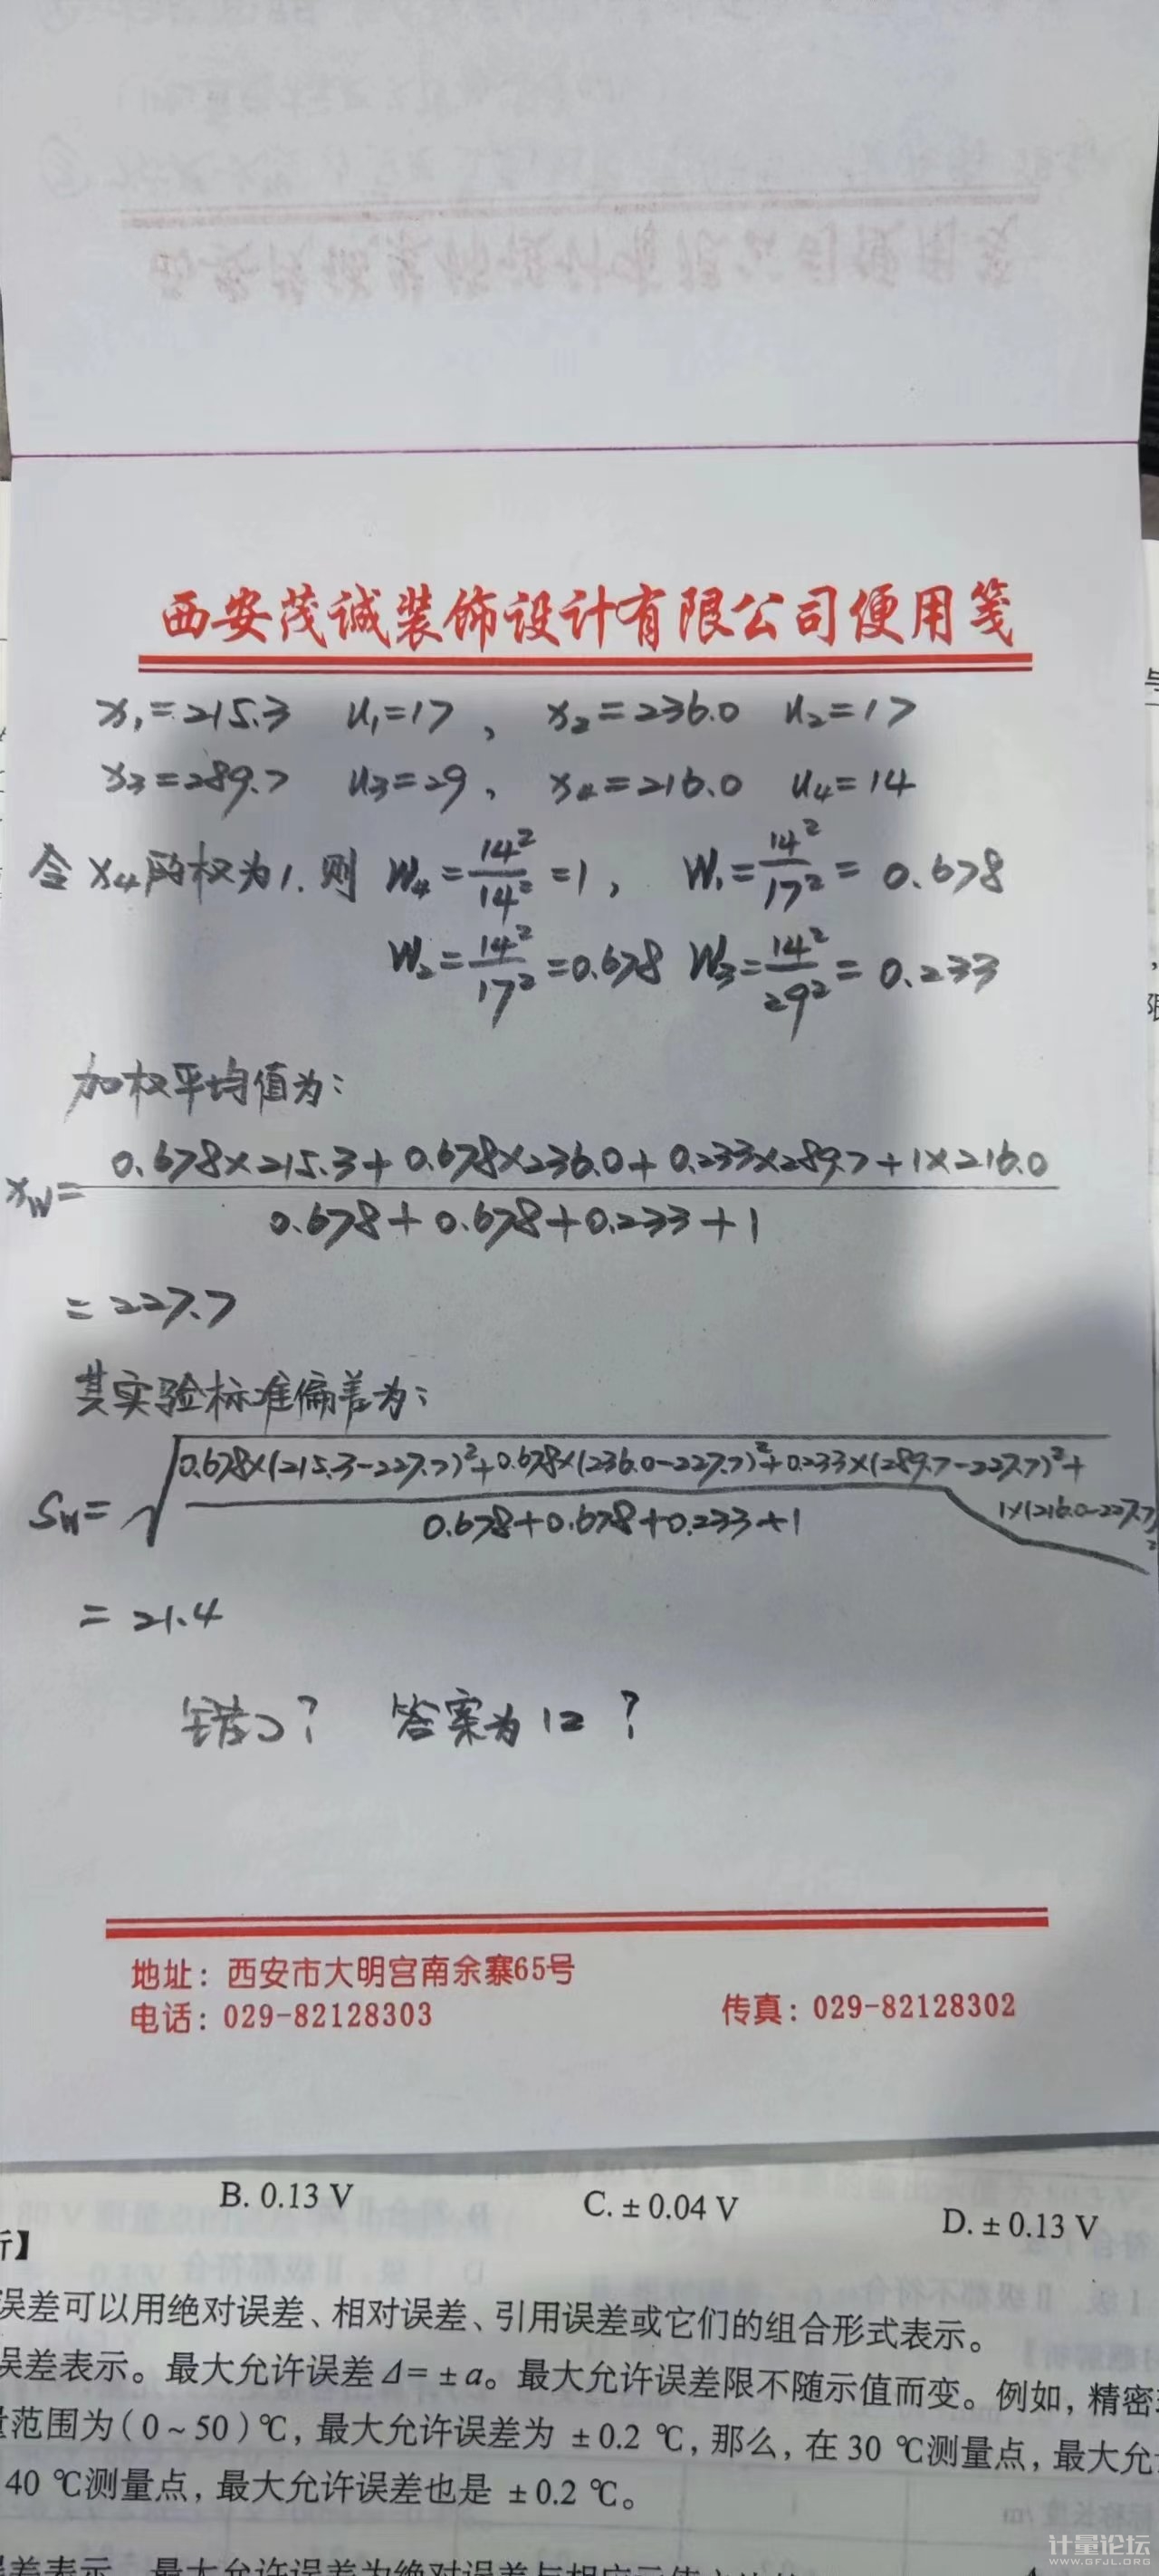 西安茂诚装饰设计有限公司便用笺
x₁=215.3 u₁=17, x₂=236.0 u₂=17
x₃=289.7 u₃=29, x₄=216.0 u₄=14
令 x₄ 的权为1. 则 W₄=14²/14²=1, W₁=14²/17²=0.678
W₂=14²/17²=0.678 W₃=14²/29²=0.233
加权平均值为:
x_W=(0.678×215.3+0.678×236.0+0.233×289.7+1×216.0)/(0.678+0.678+0.233+1)
=227.7
其实验标准偏差为:
S_W=√((0.678×(215.3-227.7)²+0.678×(236.0-227.7)²+0.233×(289.7-227.7)²+1×(216.0-227.7)²)/(0.678+0.678+0.233+1))
=21.4
错? 答案为12?
地址：西安市大明宫南余寨65号
电话：029-82128303 传真：029-82128302
B. 0.13 V C. ± 0.04 V D. ± 0.13 V
析】
误差可以用绝对误差、相对误差、引用误差或它们的组合形式表示。
误差表示。最大允许误差 Δ= ± a。最大允许误差限不随示值而变。例如，精密
量范围为（0 ~ 50）℃，最大允许误差为 ± 0.2 ℃，那么，在 30 ℃测量点，最大允
40 ℃测量点，最大允许误差也是 ± 0.2 ℃。
计量论坛
WWW.GFJL.ORG